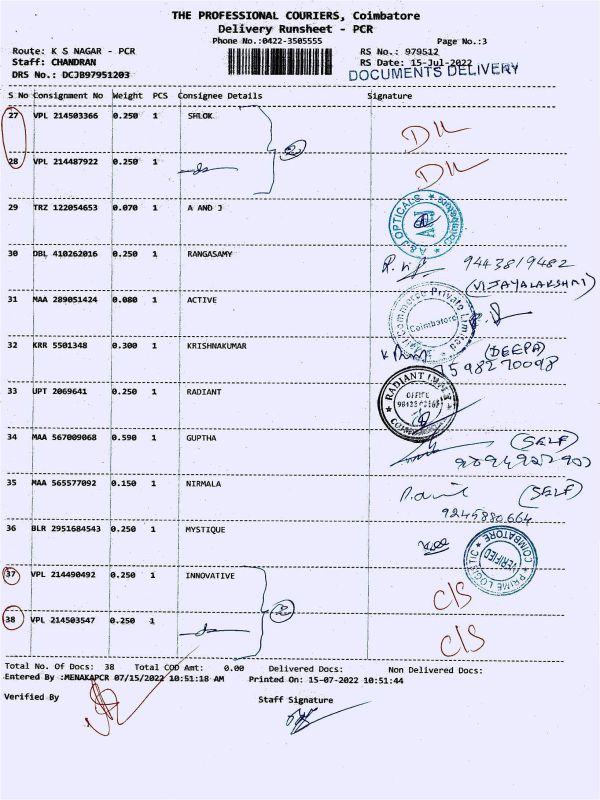 THE PROFESSIONAL COURIERS, Coimbatore
Delivery Runsheet - PCR
Phone No.:0422-3505555 Page No.:3
Route: K S NAGAR - PCR RS No.: 979512
Staff: CHANDRAN RS Date: 15-Jul-2022
DRS No.: DCJB97951203 DOCUMENTS DELIVERY
S No Consignment No Weight PCS Consignee Details Signature
27 VPL 214503366 0.250 1 SHLOK D/L
28 VPL 214487922 0.250 1 2 D/L
29 TRZ 122054653 0.070 1 A AND J
A&J OPTICALS
30 DBL 410262016 0.250 1 RANGASAMY 9443819482
(VIJAYALAKSHMI)
31 MAA 289051424 0.080 1 ACTIVE
Commerce Private Limited Coimbatore
32 KRR 5501348 0.300 1 KRISHNAKUMAR (DEEPA)
7598270098
33 UPT 2069641 0.250 1 RADIANT
RADIANT
OFFICE
34 MAA 567009068 0.590 1 GUPTHA (SELF)
35 MAA 565577092 0.150 1 NIRMALA (SELF)
9245880664
36 BLR 2951684543 0.250 1 MYSTIQUE
PRIME LOGISTIC COIMBATORE
VERIFIED
37 VPL 214490492 0.250 1 INNOVATIVE C/S
38 VPL 214503547 0.250 1 2 C/S
Total No. Of Docs: 38 Total COD Amt: 0.00 Delivered Docs: Non Delivered Docs:
Entered By :MENAKAPCR 07/15/2022 10:51:18 AM Printed On: 15-07-2022 10:51:44
Verified By Staff Signature